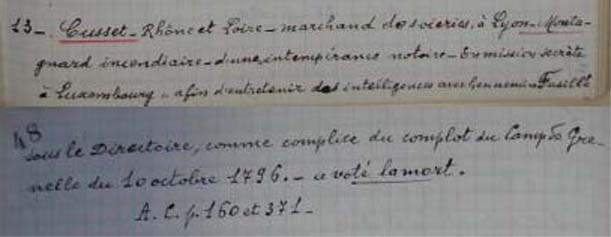 13-. Cusset - Rhône et Loire - marchand de soieries, à Lyon - Monta-
gnard incendiaire - d'une intempérance notoire - En mission secrète
à Luxembourg " afin d'entretenir des intelligences avec l'ennemi " Fusillé
48
sous le Directoire, comme complice du complot du Camp de Gre-
nelle du 10 octobre 1796. - a voté la mort.
A. C. p. 160 et 371 -